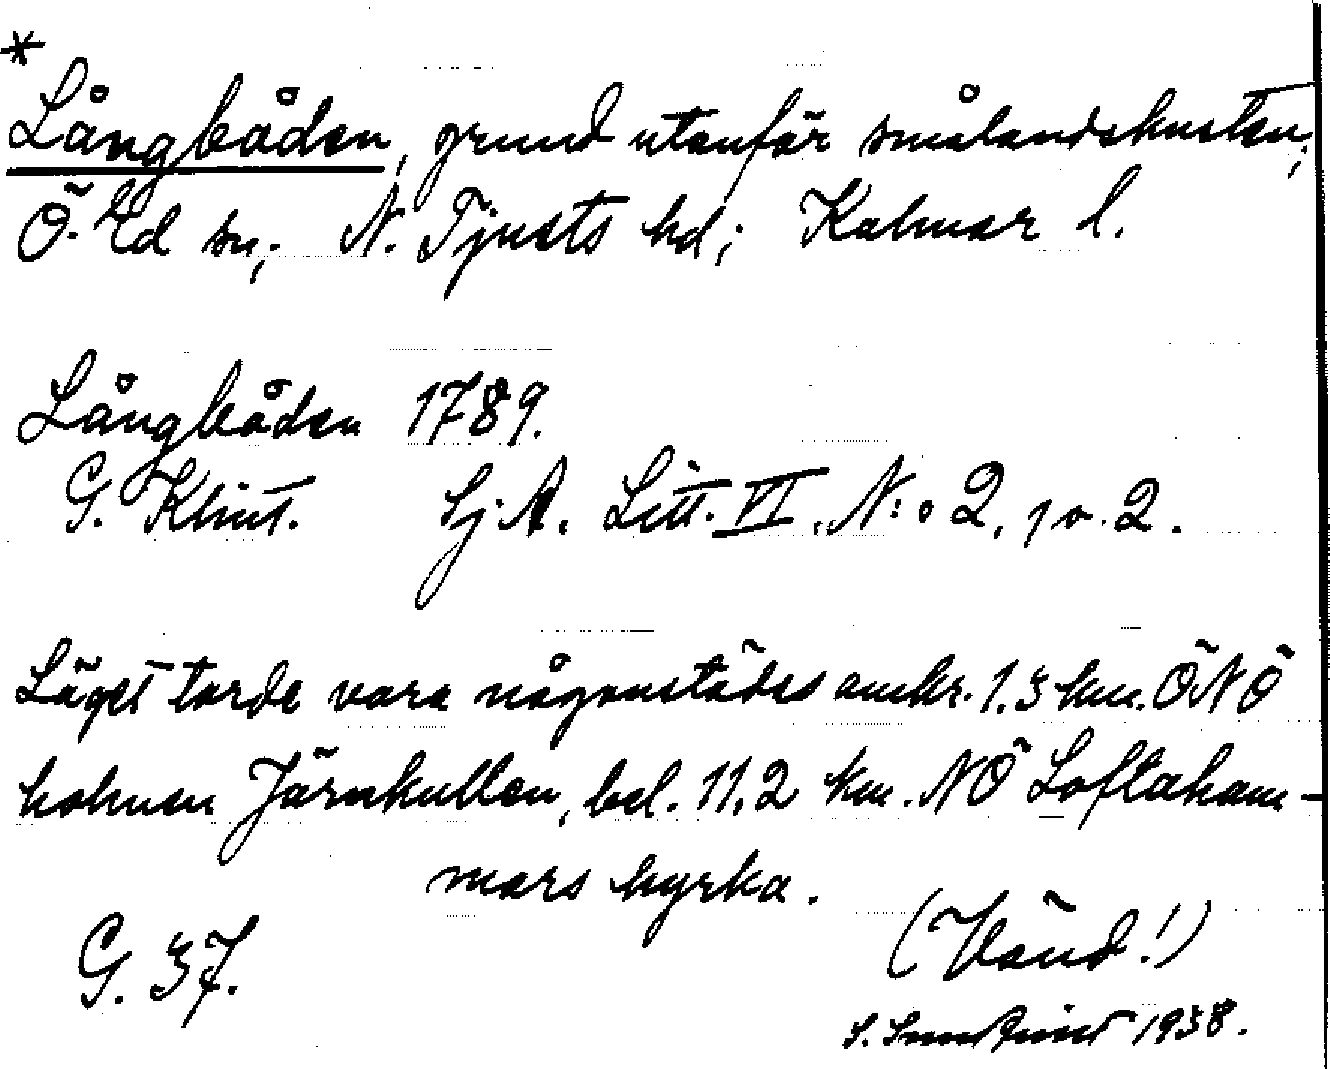 *
Långbåden, grund utanför smålandskusten;
Ö. Ed sn; N. Tjusts hd; Kalmar l.
Långbåden 1789.
G. Klint. Sj. A. Litt. VI. N:o 2, p. 2.
Läget torde vara någonstädes omkr. 1.5 km. ÖNÖ
holmen Järnkullen, bel. 11.2 km. NÖ Loftaham-
mars kyrka.
(Vänd!)
G. 37.
1938.